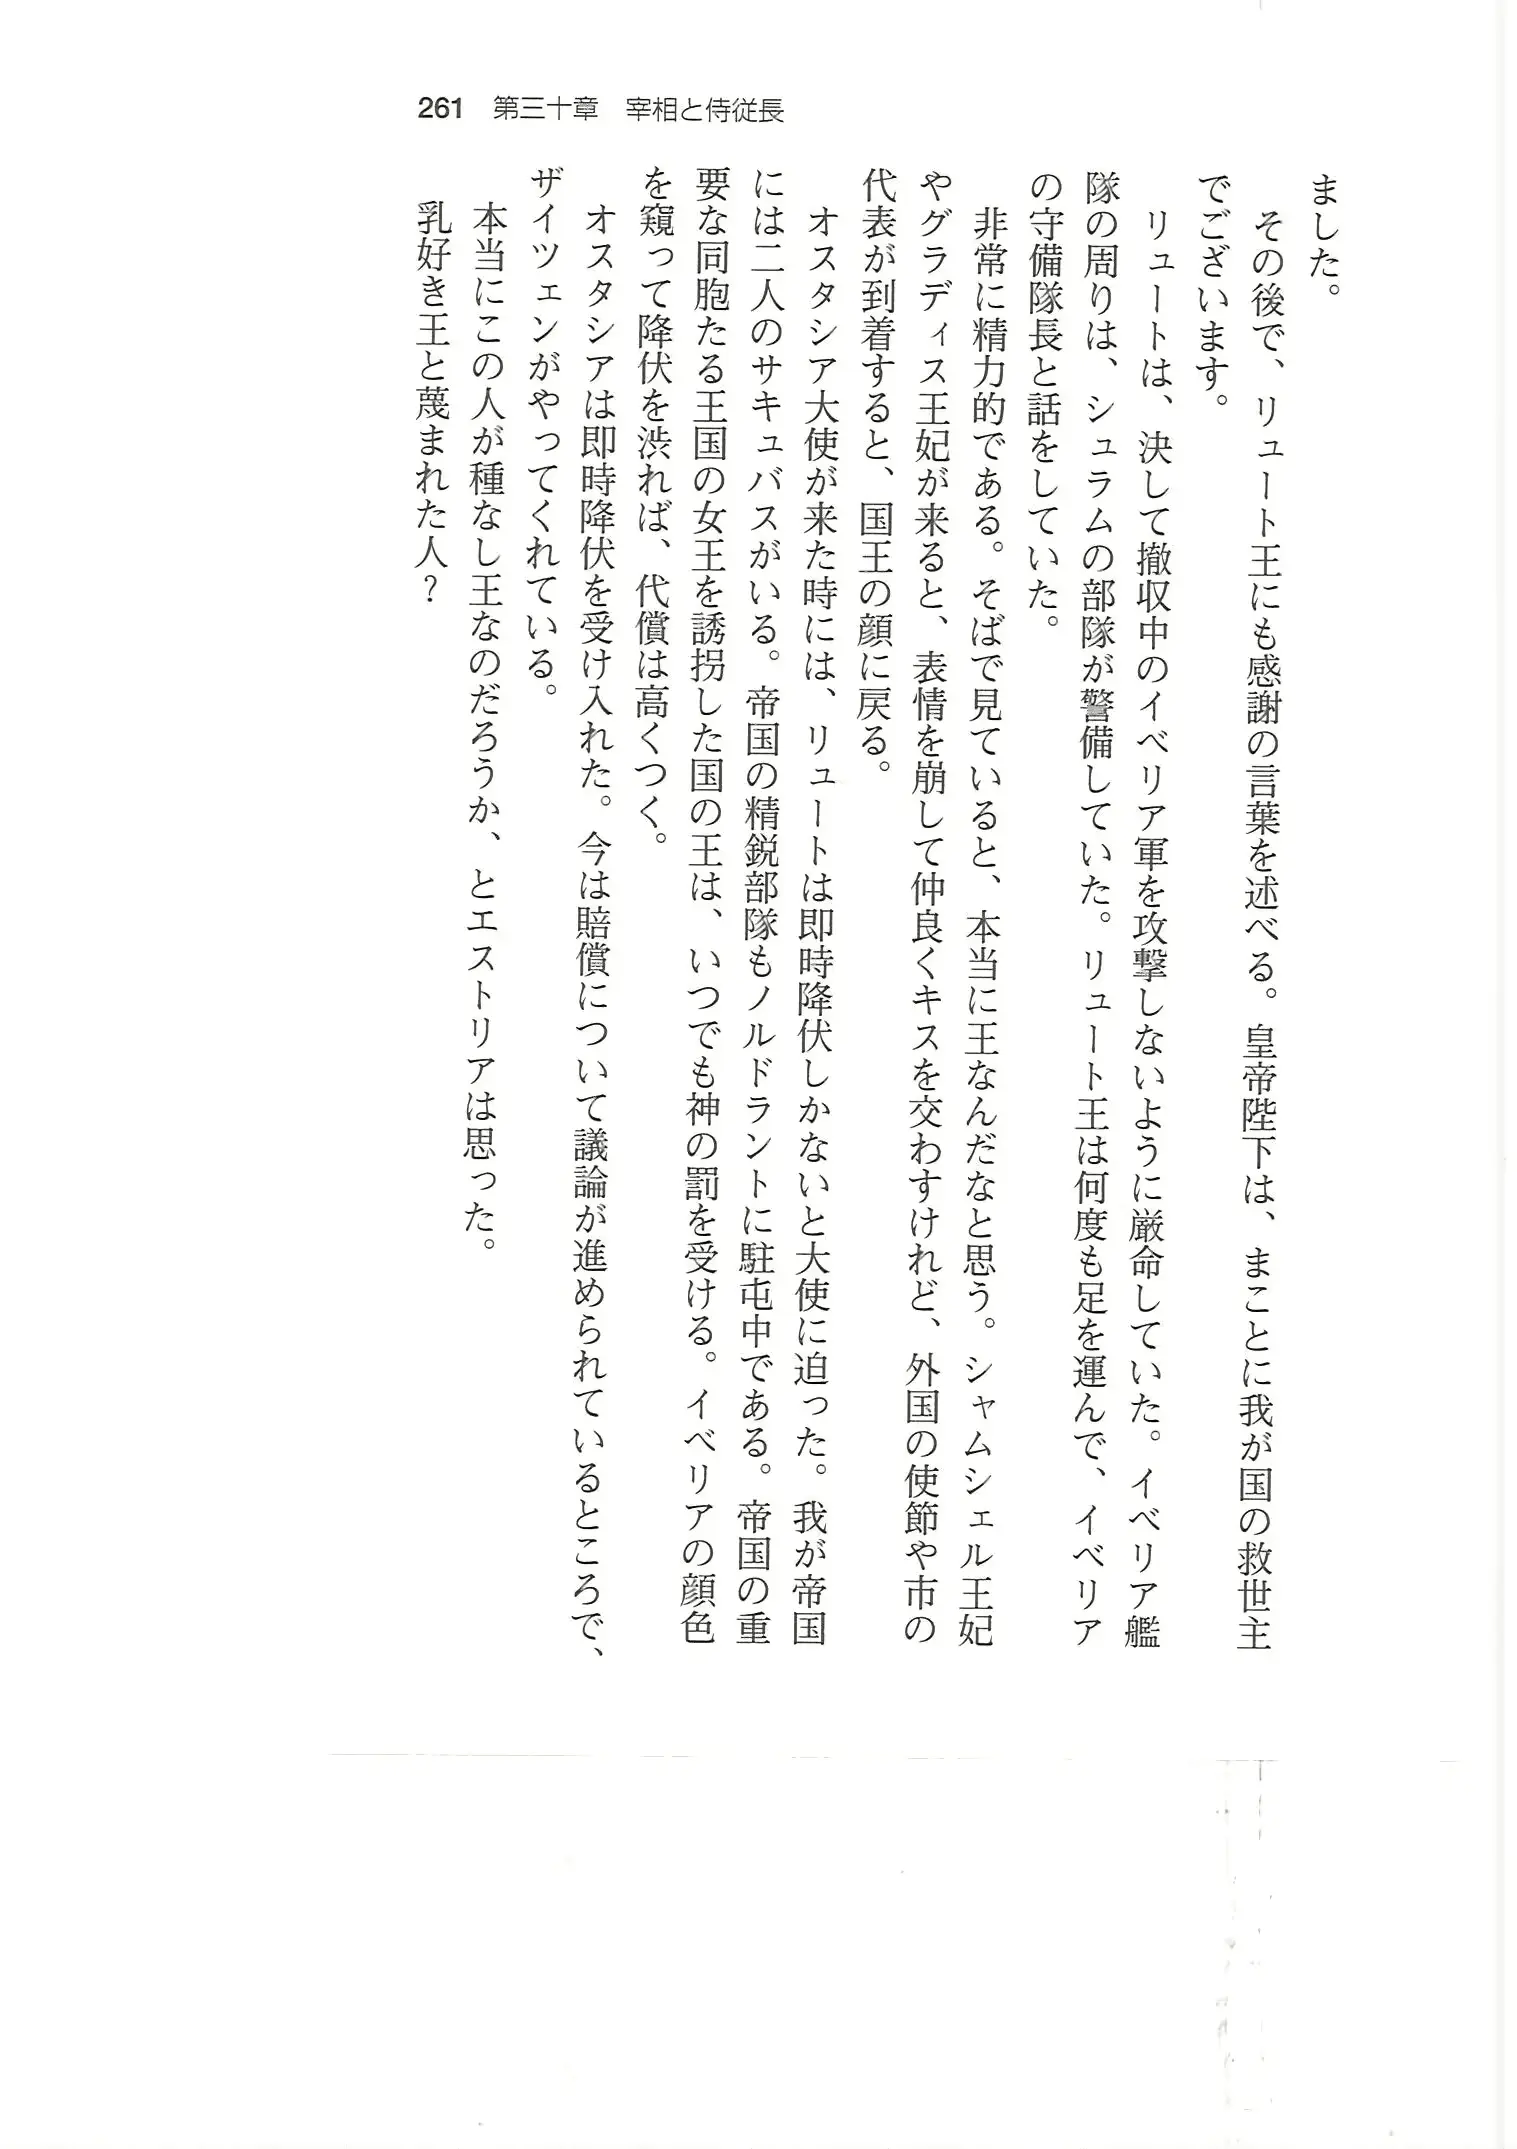 261　第三十章　宰相と侍従長
ました。
　その後で、リュート王にも感謝の言葉を述べる。皇帝陛下は、まことに我が国の救世主
でございます。
　リュートは、決して撤収中のイベリア軍を攻撃しないように厳命していた。イベリア艦
隊の周りは、シュラムの部隊が警備していた。リュート王は何度も足を運んで、イベリア
の守備隊長と話をしていた。
　非常に精力的である。そばで見ていると、本当に王なんだなと思う。シャムシェル王妃
やグラディス王妃が来ると、表情を崩して仲良くキスを交わすけれど、外国の使節や市の
代表が到着すると、国王の顔に戻る。
　オスタシア大使が来た時には、リュートは即時降伏しかないと大使に迫った。我が帝国
には二人のサキュバスがいる。帝国の精鋭部隊もノルドラントに駐屯中である。帝国の重
要な同胞たる王国の女王を誘拐した国の王は、いつでも神の罰を受ける。イベリアの顔色
を窺って降伏を渋れば、代償は高くつく。
　オスタシアは即時降伏を受け入れた。今は賠償について議論が進められているところで、
ザイツェンがやってくれている。
　本当にこの人が種なし王なのだろうか、とエストリアは思った。
　乳好き王と蔑まれた人？